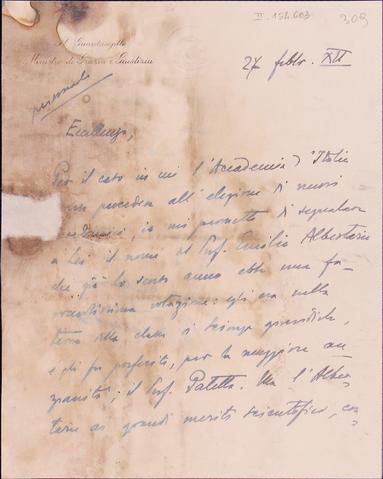 II-154.603
309
Il Guardasigilli
Ministro di Grazia e Giustizia
27 febbr. XII
personale
Eccellenza,
Per il caso in cui l'Accademia d'Italia
procedere all'elezione di nuovi
accademici, io mi permetto di segnalare
a Lei il nome del Prof. Emilio Albertario
che già lo scorso anno ebbe una fa-
vorevolissima votazione: egli era nella
terna della classe di scienze giuridiche,
e gli fu preferito, per la maggiore an-
zianità, il Prof. Patetta. Ma l'Alber-
tario ai grandi meriti scientifici, con